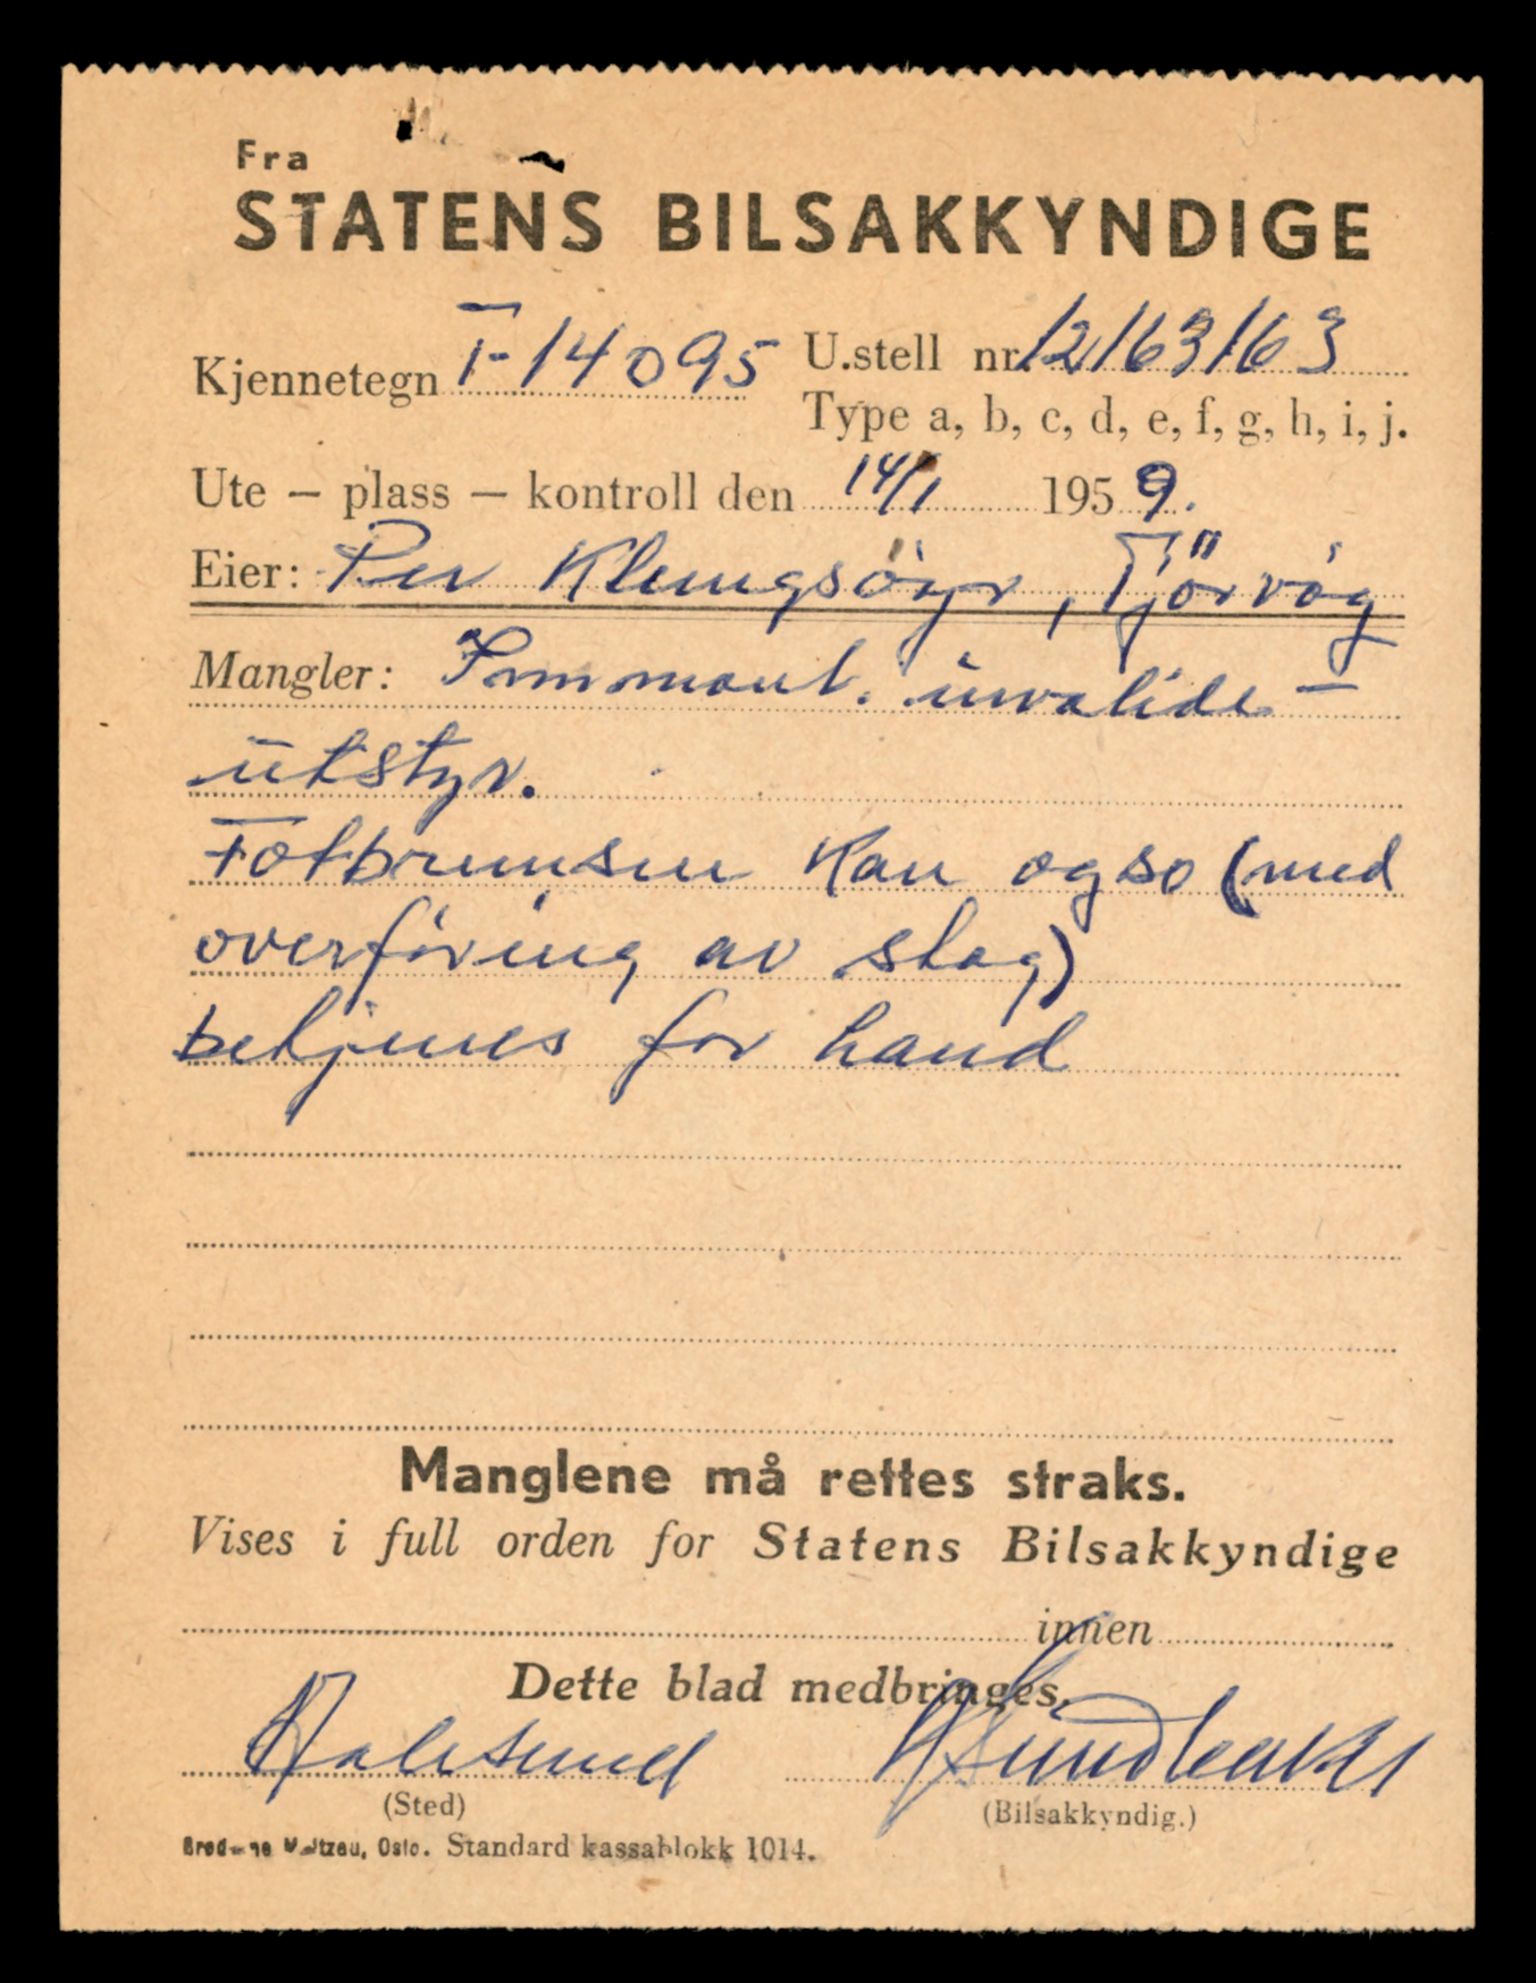 Fra
STATENS BILSAKKYNDIGE
Kjennetegn T-14095 U.stell nr. 12163163
Type a, b, c, d, e, f, g, h, i, j.
Ute – plass – kontroll den 14/1 1959.
Eier: Per Klungsöyr, Tjörvåg
Mangler: Innmont. invalide-
utstyr.
Fotbremsen kan også (med
overföring av stag)
betjenes for hand
Manglene må rettes straks.
Vises i full orden for Statens Bilsakkyndige
innen
Dette blad medbringes.
Aalesund
(Sted) (Bilsakkyndig.)
Oslo. Standard kassablokk 1014.